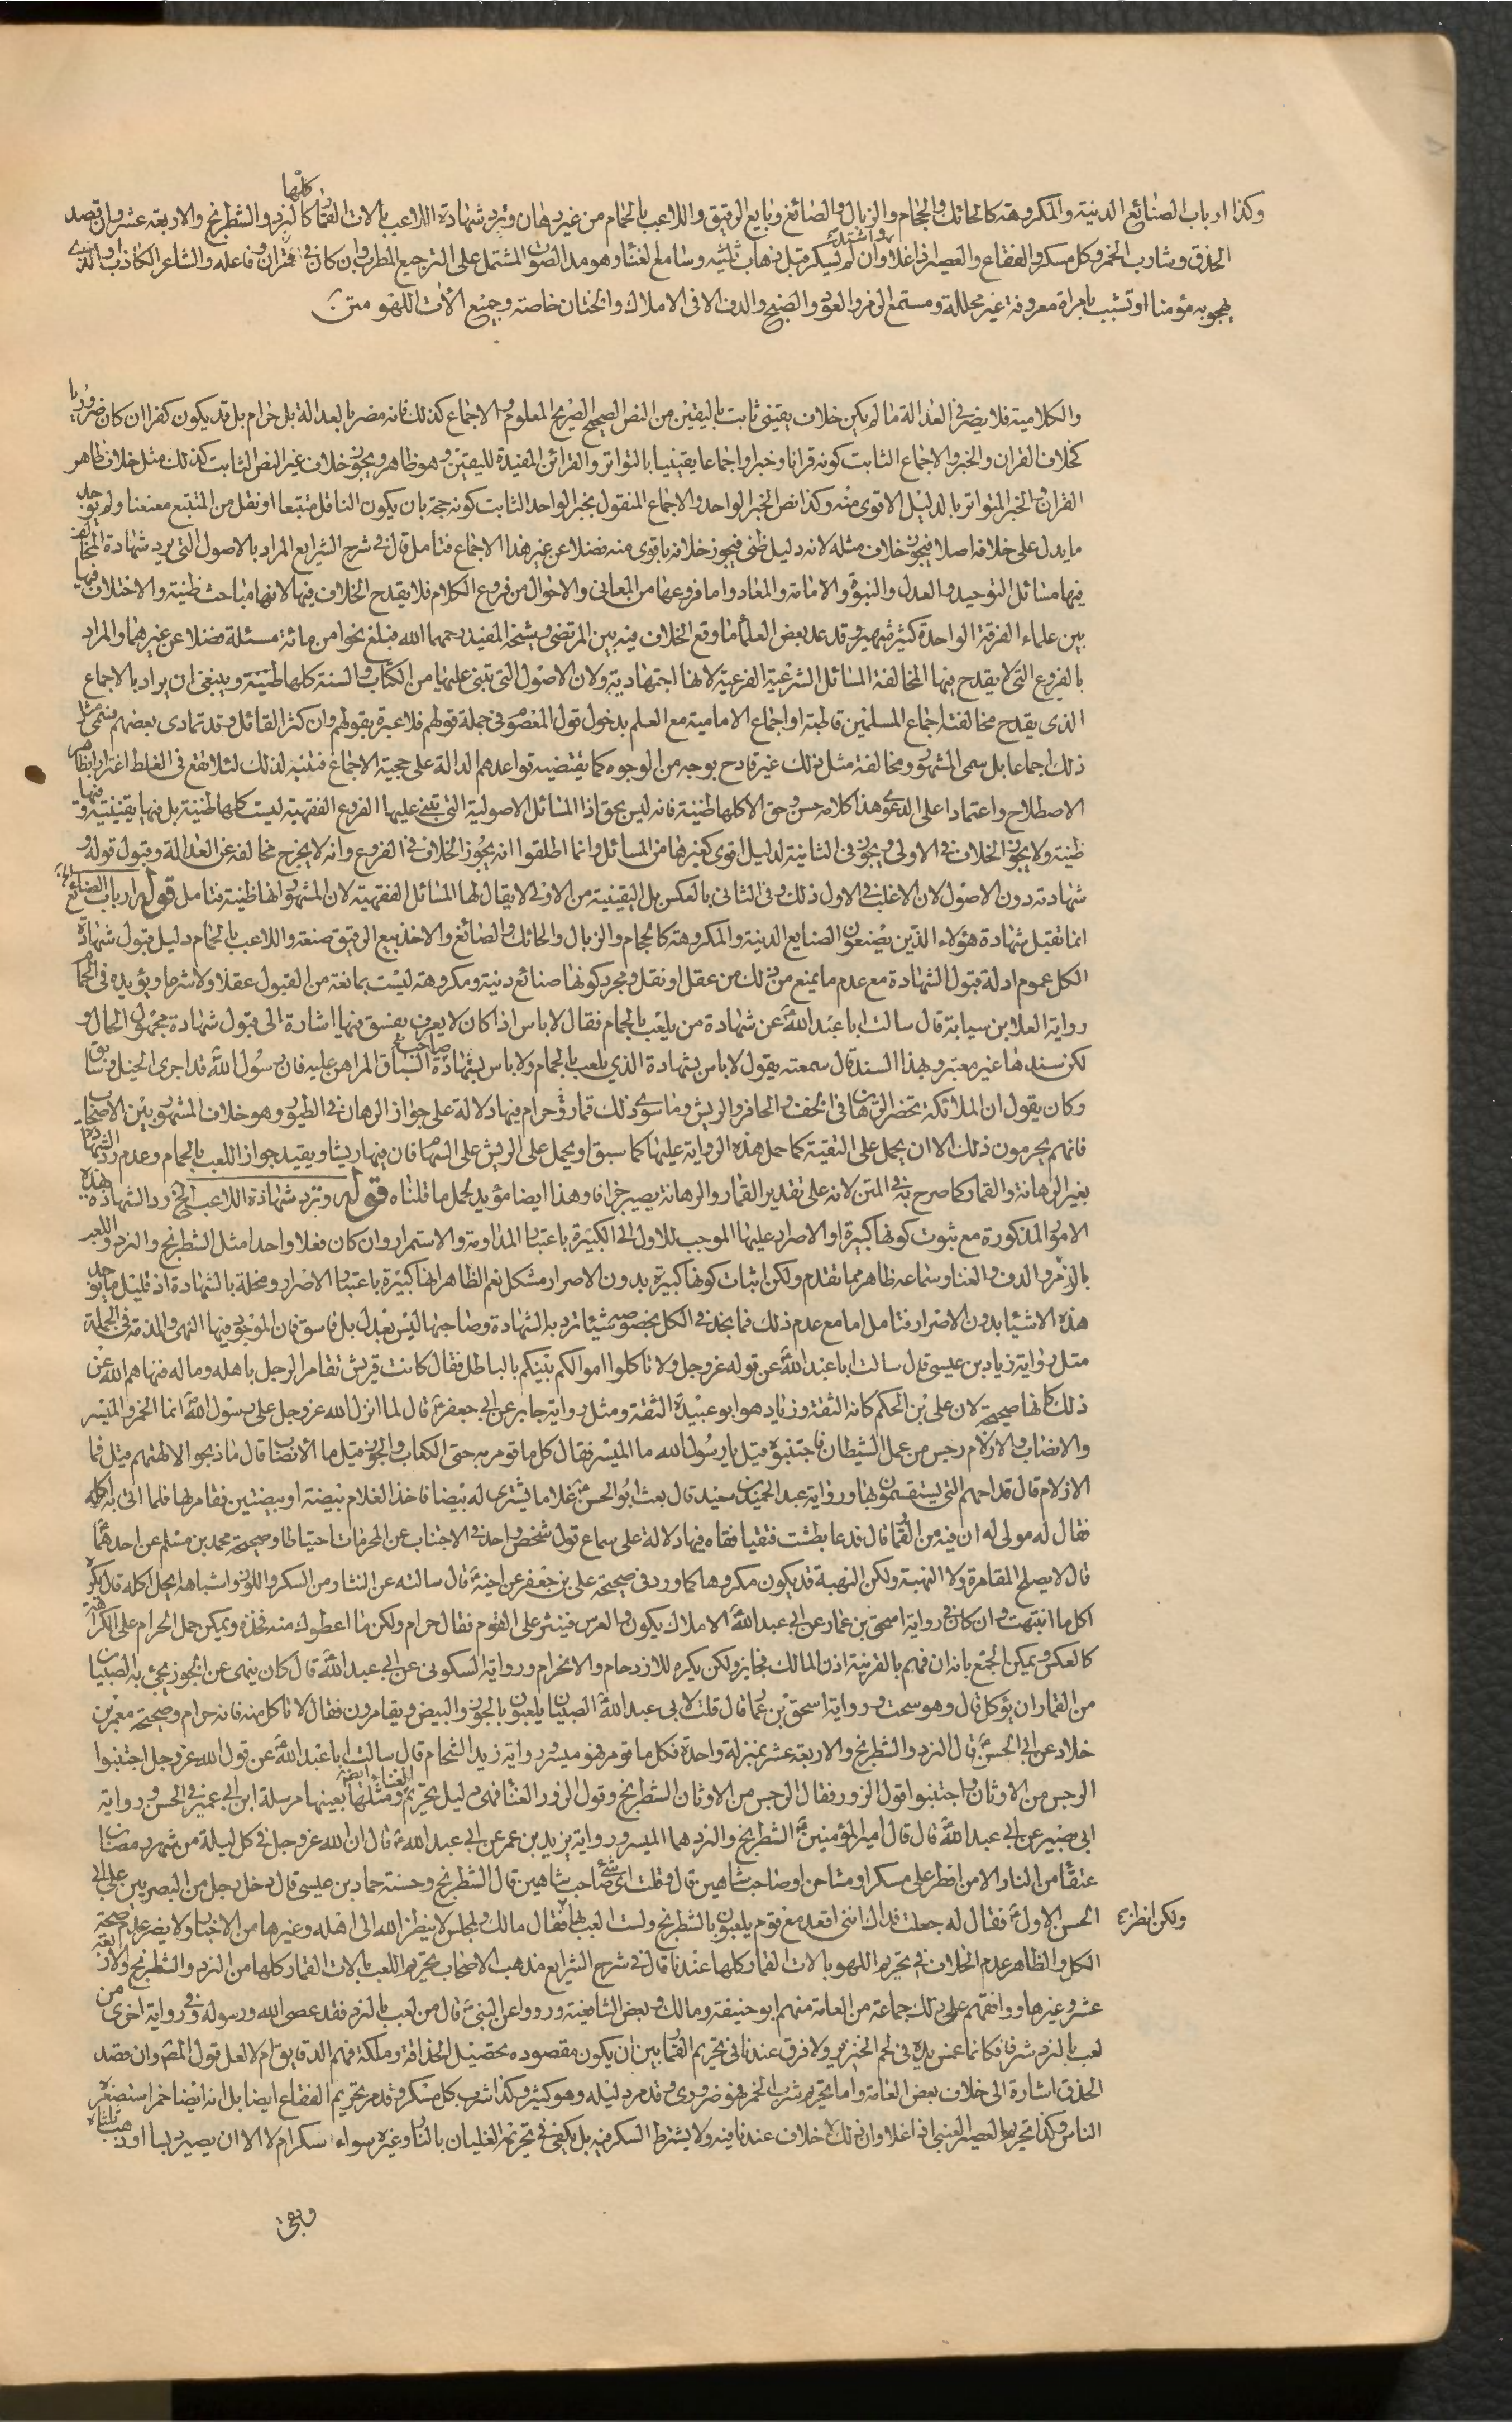 وكذا ارباب الصنائع الدنية والمكروهة كالحائك والحجام والزبال والصائغ وبايع الرقيق واللاعب بالحمام من غير رهان وترد شهادة اللاعب بالات القمار كلها كالنرد والشطرنج والاربعة عشر وان قصد
الحذق وشارب الخمر وكل مسكر والفقاع والعصير اذا غلا وان لم يسكر قبل ذهاب ثلثيه وسامع الغناء وهو مد الصوت المشتمل على الترجيع المطرب وان كان في قران وفاعله والشاعر الكاذب والذي
يهجو به مؤمنا او تشبب بامراة معروفة غير محللة ومستمع الزمر والعود والصنج والدف الا في الاملاك والختان خاصة وجميع الات اللهو متن
والكلامية فلا يضر في العدالة ما لم يكن خلاف يقيني ثابت باليقين من النص الصحيح الصريح المعلوم والاجماع كذلك فانه مضر بالعدالة بل حرام بل قد يكون كفرا ان كان ضروريا
كخلاف القران والخبر والاجماع الثابت كونه قرانا وخبرا واجماعا يقينيا بالتواتر والقرائن المفيدة لليقين وهو ظاهر ويجوز خلاف غير النص الثابت كذلك مثل خلاف ظاهر
القران والخبر المتواتر بالدليل الاقوى منه وكذا نص الخبر الواحد والاجماع المنقول بخبر الواحد الثابت كونه حجة بان يكون الناقل متتبعا او نقل من المتتبع معنعنا ولم يوجد
ما يدل على خلافه اصلا فيجوز خلاف مثله لانه دليل ظني فيجوز خلافه باقوى منه فضلا عن غير هذا الاجماع فتامل قال في شرح الشرايع المراد بالاصول التي يرد شهادة المخالف
فيها مسائل التوحيد والعدل والنبوة والامامة والمعاد واما فروعها من المعاني والاحوال من فروع الكلام فلا يقدح الخلاف فيها لانها مباحث ظنية والاختلاف فيها
بين علماء الفرقة الواحدة كثير شهير وقد عد بعض العلماء ما وقع الخلاف فيه بين المرتضى وشيخه المفيد رحمهما الله فبلغ نحوا من مائة مسئلة فضلا عن غيرهما والمراد
بالفروع التي لا يقدح فيها المخالفة المسائل الشرعية الفرعية لانها اجتهادية ولان الاصول التي تبنى عليها من الكتاب والسنة كلها ظنية وينبغي ان يراد بالاجماع
الذي يقدح مخالفته اجماع المسلمين قاطبة او اجماع الامامية مع العلم بدخول قول المعصوم في جملة قولهم فلا عبرة بقولهم وان كثر القائل وقد تمادى بعضهم فسمى مثل
ذلك اجماعا بل سمى المشهور ومخالفة مثل ذلك غير قادح بوجه من الوجوه كما يقتضيه قواعدهم الدالة على حجية الاجماع فتنبه لذلك لئلا تقع في الغلط اغترارا بظاهر
الاصطلاح واعتمادا على الدعوى هذا كلامه حسن وحق الا كلها ظنية فانه ليس بحق اذ المسائل الاصولية التي تبنى عليها الفروع الفقهية ليست كلها ظنية بل فيها يقينية وفيها
ظنية ولا يجوز الخلاف في الاولى ويجوز في الثانية لدليل اقوى كغيرها من المسائل وانما اطلقوا انه يجوز الخلاف في الفروع وانه لا يخرج مخالفه عن العدالة وقبول قوله و
شهادته دون الاصول لان الاغلب في الاول ذلك وفي الثاني بالعكس بل اليقينية من الاول لا يقال لها المسائل الفقهية لان المشهور انها ظنية فتامل قوله وارباب الصنائع الخ
انما تقبل شهادة هؤلاء الذين يصنعون الصنايع الدنية والمكروهة كالحجام والزبال والحائك والصائغ والاخذ ببيع الرقيق صنعة واللاعب بالحمام دليل قبول شهادة
الكل عموم ادلة قبول الشهادة مع عدم ما يمنع من ذلك من عقل او نقل ومجرد كونها صنائع دنية ومكروهة ليست بمانعة من القبول عقلا ولا شرعا ويؤيده في الحمام
رواية العلا بن سيابة قال سالت ابا عبد الله ع عن شهادة من يلعب بالحمام فقال لا باس اذا كان لا يعرف بفسق فيها اشارة الى قبول شهادة مجهول الحال و
لكن سندها غير معتبر وبهذا السند قال سمعته يقول لا باس بشهادة الذي يلعب بالحمام ولا باس بشهادة صاحب السباق المراهن عليه فان رسول الله قد اجرى الخيل وسابق
وكان يقول ان الملائكة تحضر الرهان في الخف والحافر والريش وما سوى ذلك قمار حرام فيها دلالة على جواز الرهان في الطيور وهو خلاف المشهور بين الاصحاب
فانهم يحرمون ذلك الا ان يحمل على التقية كما حمل هذه الرواية عليها كما سبق او يحمل على الريش على السهام فان فيها ريشا ويقيد جواز اللعب بالحمام وعدم رد الشهادة
بغير الرهانة والقمار كما صرح به في المتن لانه على تقدير القمار والرهانة يصير حراما وهذا ايضا مؤيد لحمل ما قلناه قوله وترد شهادة اللاعب الخ رد الشهادة بهذه
الامور المذكورة مع ثبوت كونها كبيرة او الاصرار عليها الموجب للاول الى الكبيرة باعتبار المداومة والاستمرار وان كان فعلا واحدا مثل الشطرنج والنرد واللعب
بالزمر والدف والغناء وسماعه ظاهر مما تقدم ولكن اثبات كونها كبيرة بدون الاصرار مشكل نعم الظاهر انها كبيرة باعتبار الاصرار ومخلة بالشهادة اذ قليل ما يوجد
هذه الاشياء بدون الاصرار فتامل اما مع عدم ذلك فما نجد في الكل بخصوصه شيئا ترد به الشهادة وصاحبها ليس بعدل بل فاسق فان الموجود فيها النهي والمذمة في الجملة
مثل رواية زياد بن عيسى قال سالت ابا عبد الله ع عن قوله عز وجل ولا تاكلوا اموالكم بينكم بالباطل فقال كانت قريش تقامر الرجل باهله وماله فنهاهم الله عن
ذلك كانها صحيحة لان علي بن الحكم كانه الثقة وزياد هو ابو عبيدة الثقة ومثل رواية جابر عن ابي جعفر ع قال لما انزل الله عز وجل على رسول الله انما الخمر والميسر
والانصاب والازلام رجس من عمل الشيطان فاجتنبوه قيل يا رسول الله ما الميسر فقال كل ما قومر به حتى الكعاب والجوز قيل ما الانصاب قال ما ذبحوا لالهتهم قيل فما
الازلام قال قداحهم التي يستقسمون بها ورواية عبد الحميد بن سعيد قال بعث ابو الحسن ع غلاما يشتري له بيضا فاخذ الغلام بيضة او بيضتين فقامر بها فلما اتى به اكله
فقال له مولى له ان فيه من القمار قال فدعا بطشت فتقيا فقاه فيها دلالة على سماع قول شخص واحد في الاجتناب عن المحرمات احتياطا وصحيحة محمد بن مسلم عن احدهما
قال لا يصلح المقامرة ولا النهبة ولكن النهبة قد يكون مكروها كما ورد في صحيحة علي بن جعفر عن اخيه ع قال سالته عن النثار من السكر واللوز واشباهه ايحل اكله قال يكره
اكل ما انتهبت وان كان في رواية اسحق بن عمار عن ابي عبد الله ع الاملاك يكون والعرس فينثر على القوم فقال حرام ولكن ما اعطوك منه فخذه ويمكن حمل الحرام على الكراهة
كالعكس ويمكن الجمع بانه ان فهم بالقرينة اذن المالك فجايز ولكن يكره للازدحام والانخرام ورواية السكوني عن ابي عبد الله ع قال كان ينهى عن الجوز يجئ به الصبيان
من القمار ان يؤكل قال وهو سحت ورواية اسحق بن عمار قال قلت لابي عبد الله ع الصبيان يلعبون بالجوز والبيض ويقامرون فقال لا تاكل منه فانه حرام وصحيحة معمر بن
خلاد عن ابي الحسن ع قال النرد والشطرنج والاربعة عشر بمنزلة واحدة فكل ما قومر فهو ميسر ورواية زيد الشحام قال سالت ابا عبد الله ع عن قول الله عز وجل اجتنبوا
الرجس من الاوثان واجتنبوا قول الزور فقال الرجس من الاوثان الشطرنج وقول الزور الغناء فهي دليل تحريم الغناء ايضا ومثلها بعينها مرسلة ابن ابي عمير في الحسن ورواية
ابي بصير عن ابي عبد الله ع قال قال امير المؤمنين ع الشطرنج والنرد هما الميسر ورواية يزيد بن عمر عن ابي عبد الله ع قال ان الله عز وجل في كل ليلة من شهر رمضان
عتقاء من النار الا من افطر على مسكر او مشاحن او صاحب شاهين قال وقلت اى شئ صاحب شاهين قال الشطرنج وحسنة حماد بن عيسى قال دخل رجل من البصريين على ابي
الحسن الاول ع فقال له جعلت فداك انني اقعد مع قوم يلعبون بالشطرنج ولست العب بها ولكن انظر فقال مالك ولمجلس لا ينظر الله الى اهله وغيرها من الاخبار ولا يضر عدم صحة
الكل والظاهر عدم الخلاف في تحريم اللهو بالات القمار كلها عندنا قال في شرح الشرايع مذهب الاصحاب تحريم اللعب بالات القمار كلها من النرد والشطرنج والاربعة
عشر وغيرها ووافقهم على ذلك جماعة من العامة منهم ابو حنيفة ومالك وبعض الشافعية ورووا عن النبي ص قال من لعب بالنرد فقد عصى الله ورسوله وفي رواية اخرى من
لعب بالنرد شر فكانما غمس يده في لحم الخنزير ولا فرق عندنا في تحريم القمار بين ان يكون مقصوده تحصيل الحذاقة وملكة فهم الدقايق ام لا لعل قول المص وان قصد
الحذق اشارة الى خلاف بعض العامة واما تحريم شرب الخمر فهو ضروري وقد مر دليله وهو كثير وكذا شرب كل مسكر وقد مر تحريم الفقاع ايضا بل انه ايضا خمر استصغره
الناس وكذا تحريم العصير العنبي اذا غلا وان ذلك لا خلاف عندنا فيه ولا يشترط السكر فيه بل يكفي في تحريم الغليان بالنار وغيره سواء سكر ام لا الا ان يصير دبسا او ذهب ثلثاه
وبقى